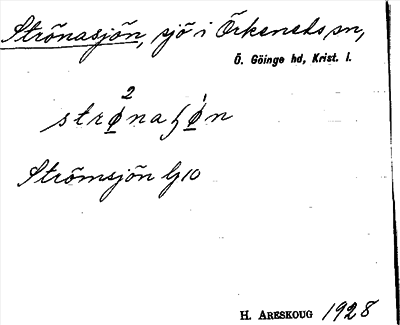 Strönasjön, sjö i Örkeneds sn,
Ö. Göinge hd, Krist. l.
Strömsjön
H. Areskoug 1928